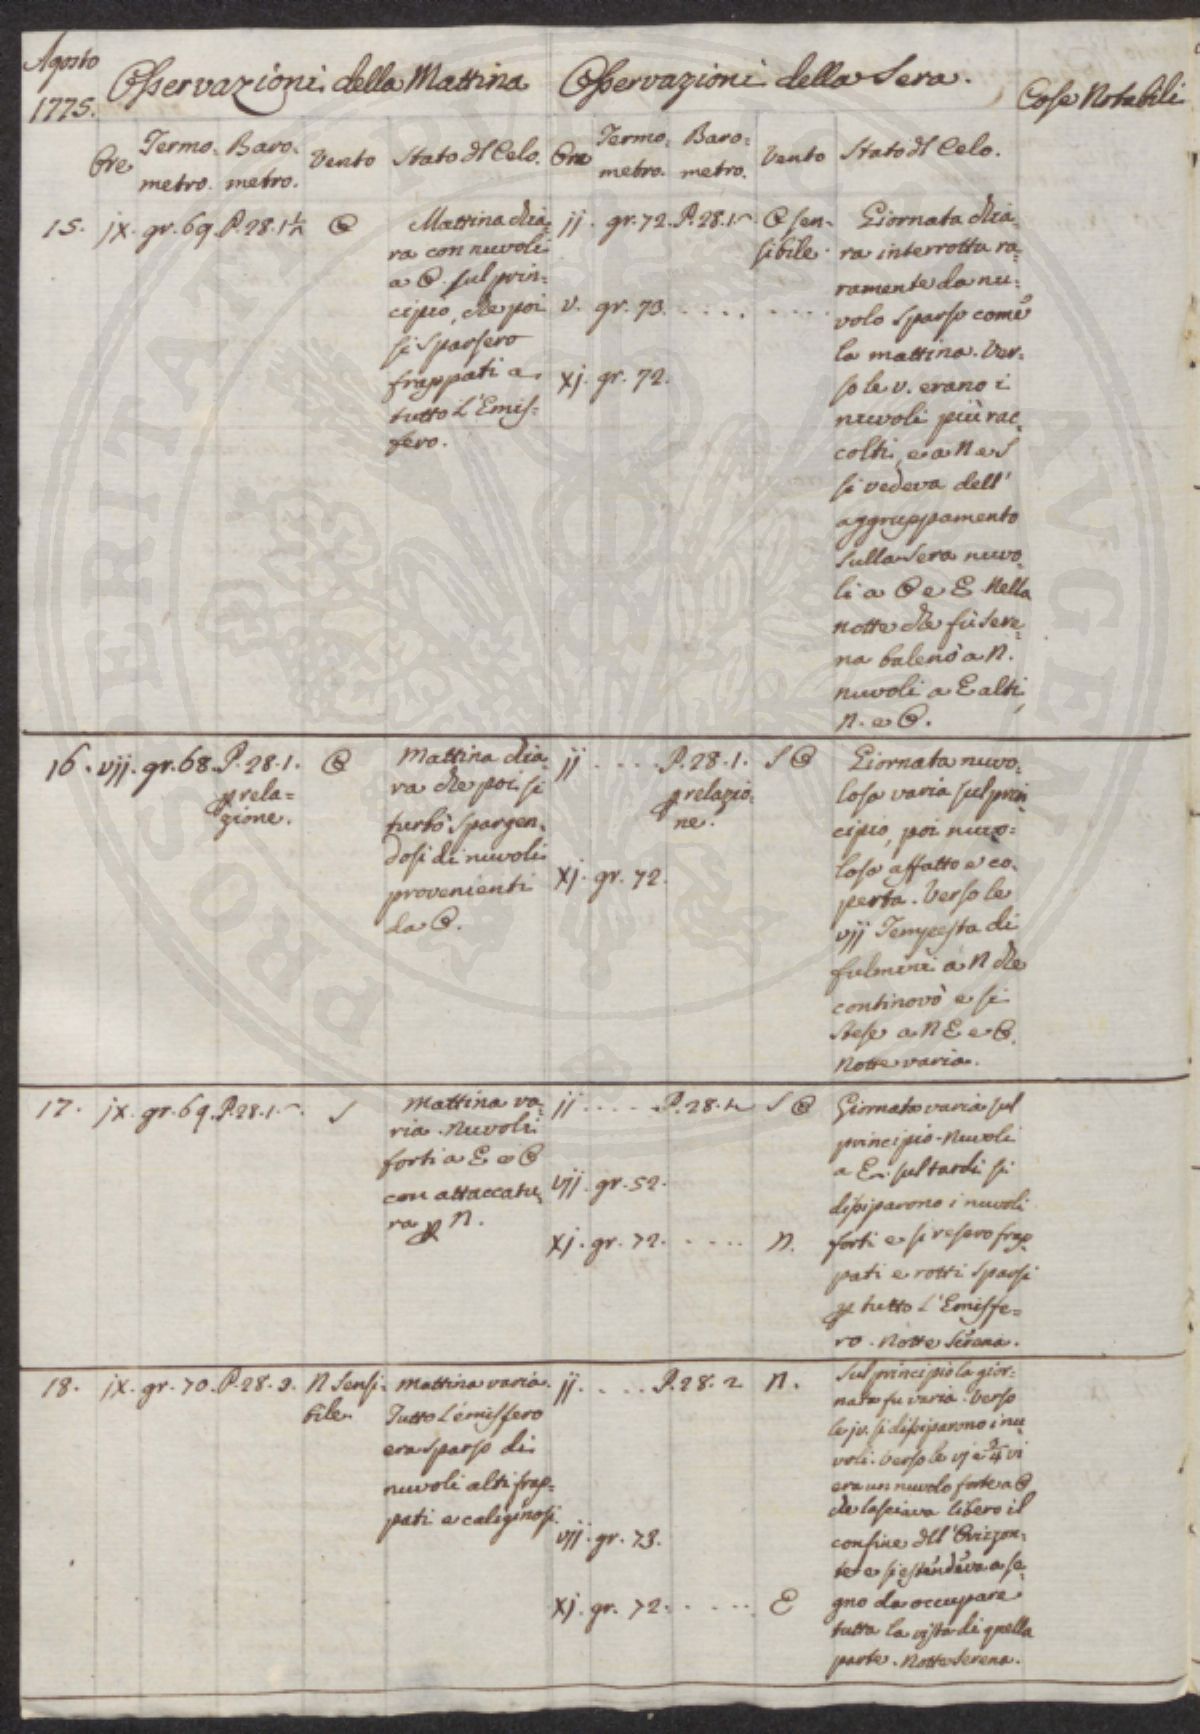 Agosto
1775.
Osservazioni della Mattina
Osservazioni della Sera.
Cose Notabili
Ore
Termo-
metro.
Baro-
metro.
Vento
Stato dl Celo.
Ore
Termo-
metro.
Baro-
metro.
Vento
Stato dl Celo.
15. jx. gr. 69. P. 28. 1½ O
Mattina chia-
ra con nuvoli
a O. sul prin-
cipio, che poi
si sparsero
frappati a
tutto l'Emis-
fero.
ij. gr. 72. P. 28. 1. O sen-
sibile.
v. gr. 73. . . . . . . . .
xj. gr. 72.
Giornata chia-
ra interrotta ra-
ramente da nu-
volo sparso come
la mattina. Ver-
so le v. erano i
nuvoli più rac-
colti, e a N e S
si vedeva dell'
aggruppamento
sulla sera nuvo-
li a O e E. Nella
notte che fù sere-
na balenò a N.
nuvoli a E alti,
N. e O.
16. vij. gr. 68. P. 28. 1. O
p rela-
zione.
Mattina chia-
ra che poi si
turbò spargen-
dosi di nuvoli
provenienti
da O.
ij . . . . P. 28. 1. S O
p relazio-
ne.
xj. gr. 72.
Giornata nuvo-
losa varia sul prin-
cipio, poi nuvo-
losa affatto e co-
perta. Verso le
vij Tempesta di
fulmini a N che
continovò e si
stese a N E e O.
Notte varia.
17. jx. gr. 69. P. 28. 1. S
Mattina va-
ria. Nuvoli
forti a E e O
con attaccatu-
ra p N.
ij . . . . . P. 28. S O
vij. gr. 52.
xj. gr. 72. . . . . N.
Giornata varia sul
principio. Nuvoli
a E. sul tardi si
dissiparono i nuvoli
forti e si resero frap-
pati e rotti sparsi
p tutto l'Emisfe-
ro. Notte serena.
18. jx. gr. 70. P. 28. 2. N Sensi-
bile.
Mattina varia.
Tutto l'emisfero
era sparso di
nuvoli alti frap-
pati e caliginosi.
ij. . . . . P. 28. 2 N.
vij. gr. 73.
xj. gr. 72. . . . . . E
Sul principio la gior-
nata fu varia. Verso
le jv. si dissiparono i nu-
voli. Verso le vj e ¾ vi
era un nuvolo forte a O
che lasciava libero il
confine dll' Orizzon-
te e si estendeva a se-
gno da occupare
tutta la vista di quella
parte. Notte serena.
PROSPERITATI PUBLICAE AUGENDAE